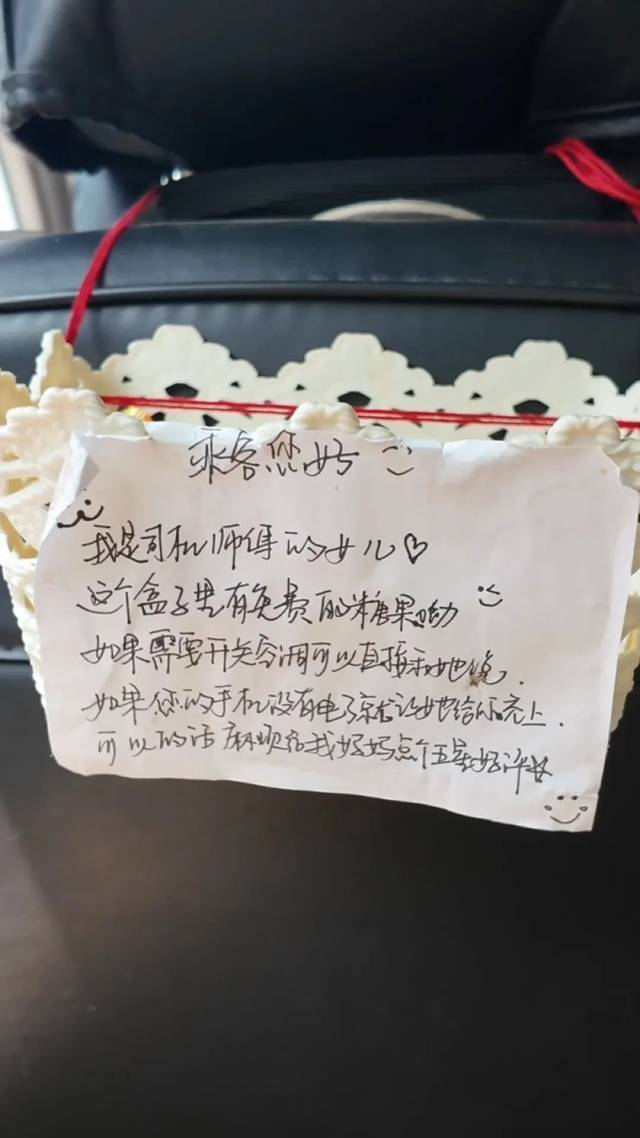 乘客您好
我是司机师得的女儿♡
这个盒子里有免费的糖果呦
如果需要开关空调可以直接和她说.
如果您的手机没有电了就让她给你充上.
可以的话麻烦给我妈妈点个五星好评